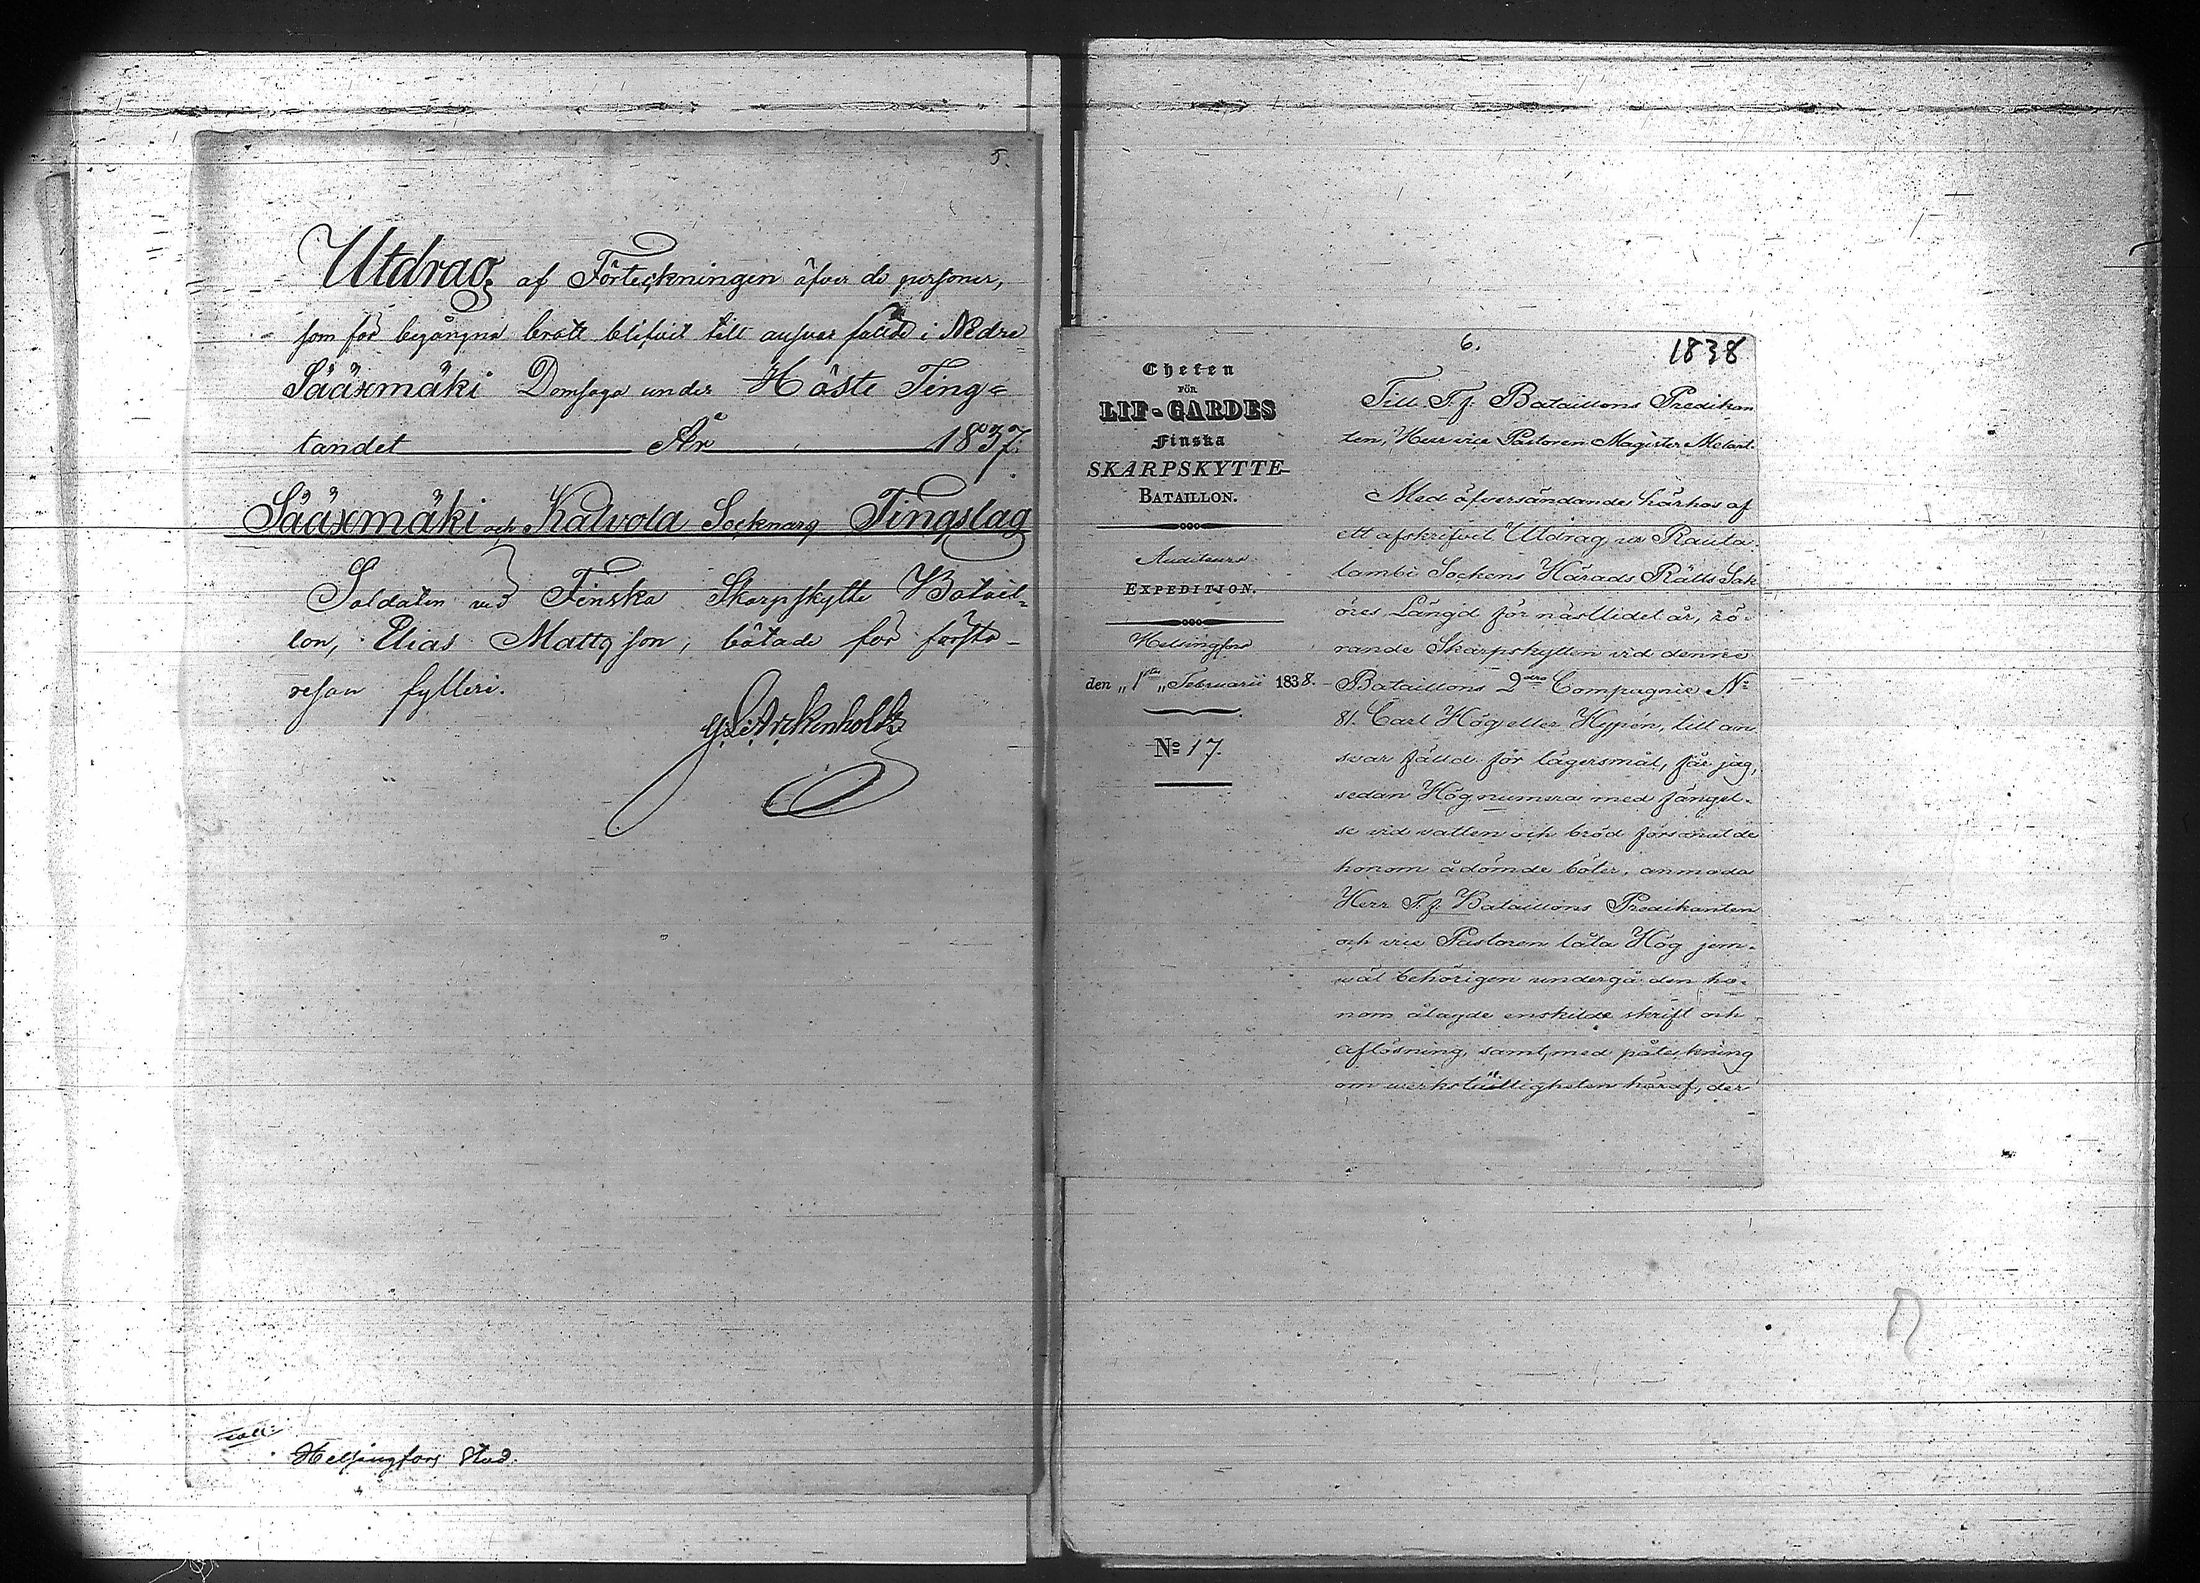 5.
Utdrag af Förteckningen öfver de personer,
som för begångna brott blifvit till ansvar fällde i Nedre
Sääxmäki Domsaga under Höste Ting-
tandet År 1837.
Sääxmäki och Kalvola Socknars Tingslag
Soldaten vid Finska Skarpskytte Batail-
lon, Elias Mattsson, bötade för första
resan fylleri.
G. L. Arckenholtz
Helsingfors Stad.
6.
1838
Chefen
FÖR
LIF-GARDES
Finska
SKARPSKYTTE-
BATAILLON.
Auditeurs
EXPEDITION.
Helsingfors
den „ 1sta „ Februarii 1838.
No 17.
Till T. f. Bataillons Predikan
ten, Herr vice Pastoren Magister
Med öfversändande härhos af
ett afskrifvit Utdrag ur Rauta-
lambi Sockens Härads Rätts Sak
öres Längd för nästlidet år, rö-
rande Skarpskytten vid denne
Bataillons 2dra Compagnie No
81. Carl Hög eller Hypén, till an
svar fälld för lägersmål, får jag,
sedan Hög numera med fängel-
se vid vatten och bröd försonat de
honom ådömde böter, anmoda
Herr T. f. Bataillons Predikanten
och vice Pastoren låta Hög jem-
wäl behörigen undergå den ho-
nom ålagde enskilde skrift och
aflösning, samt, med påteckning
om werkställigheten häraf, der